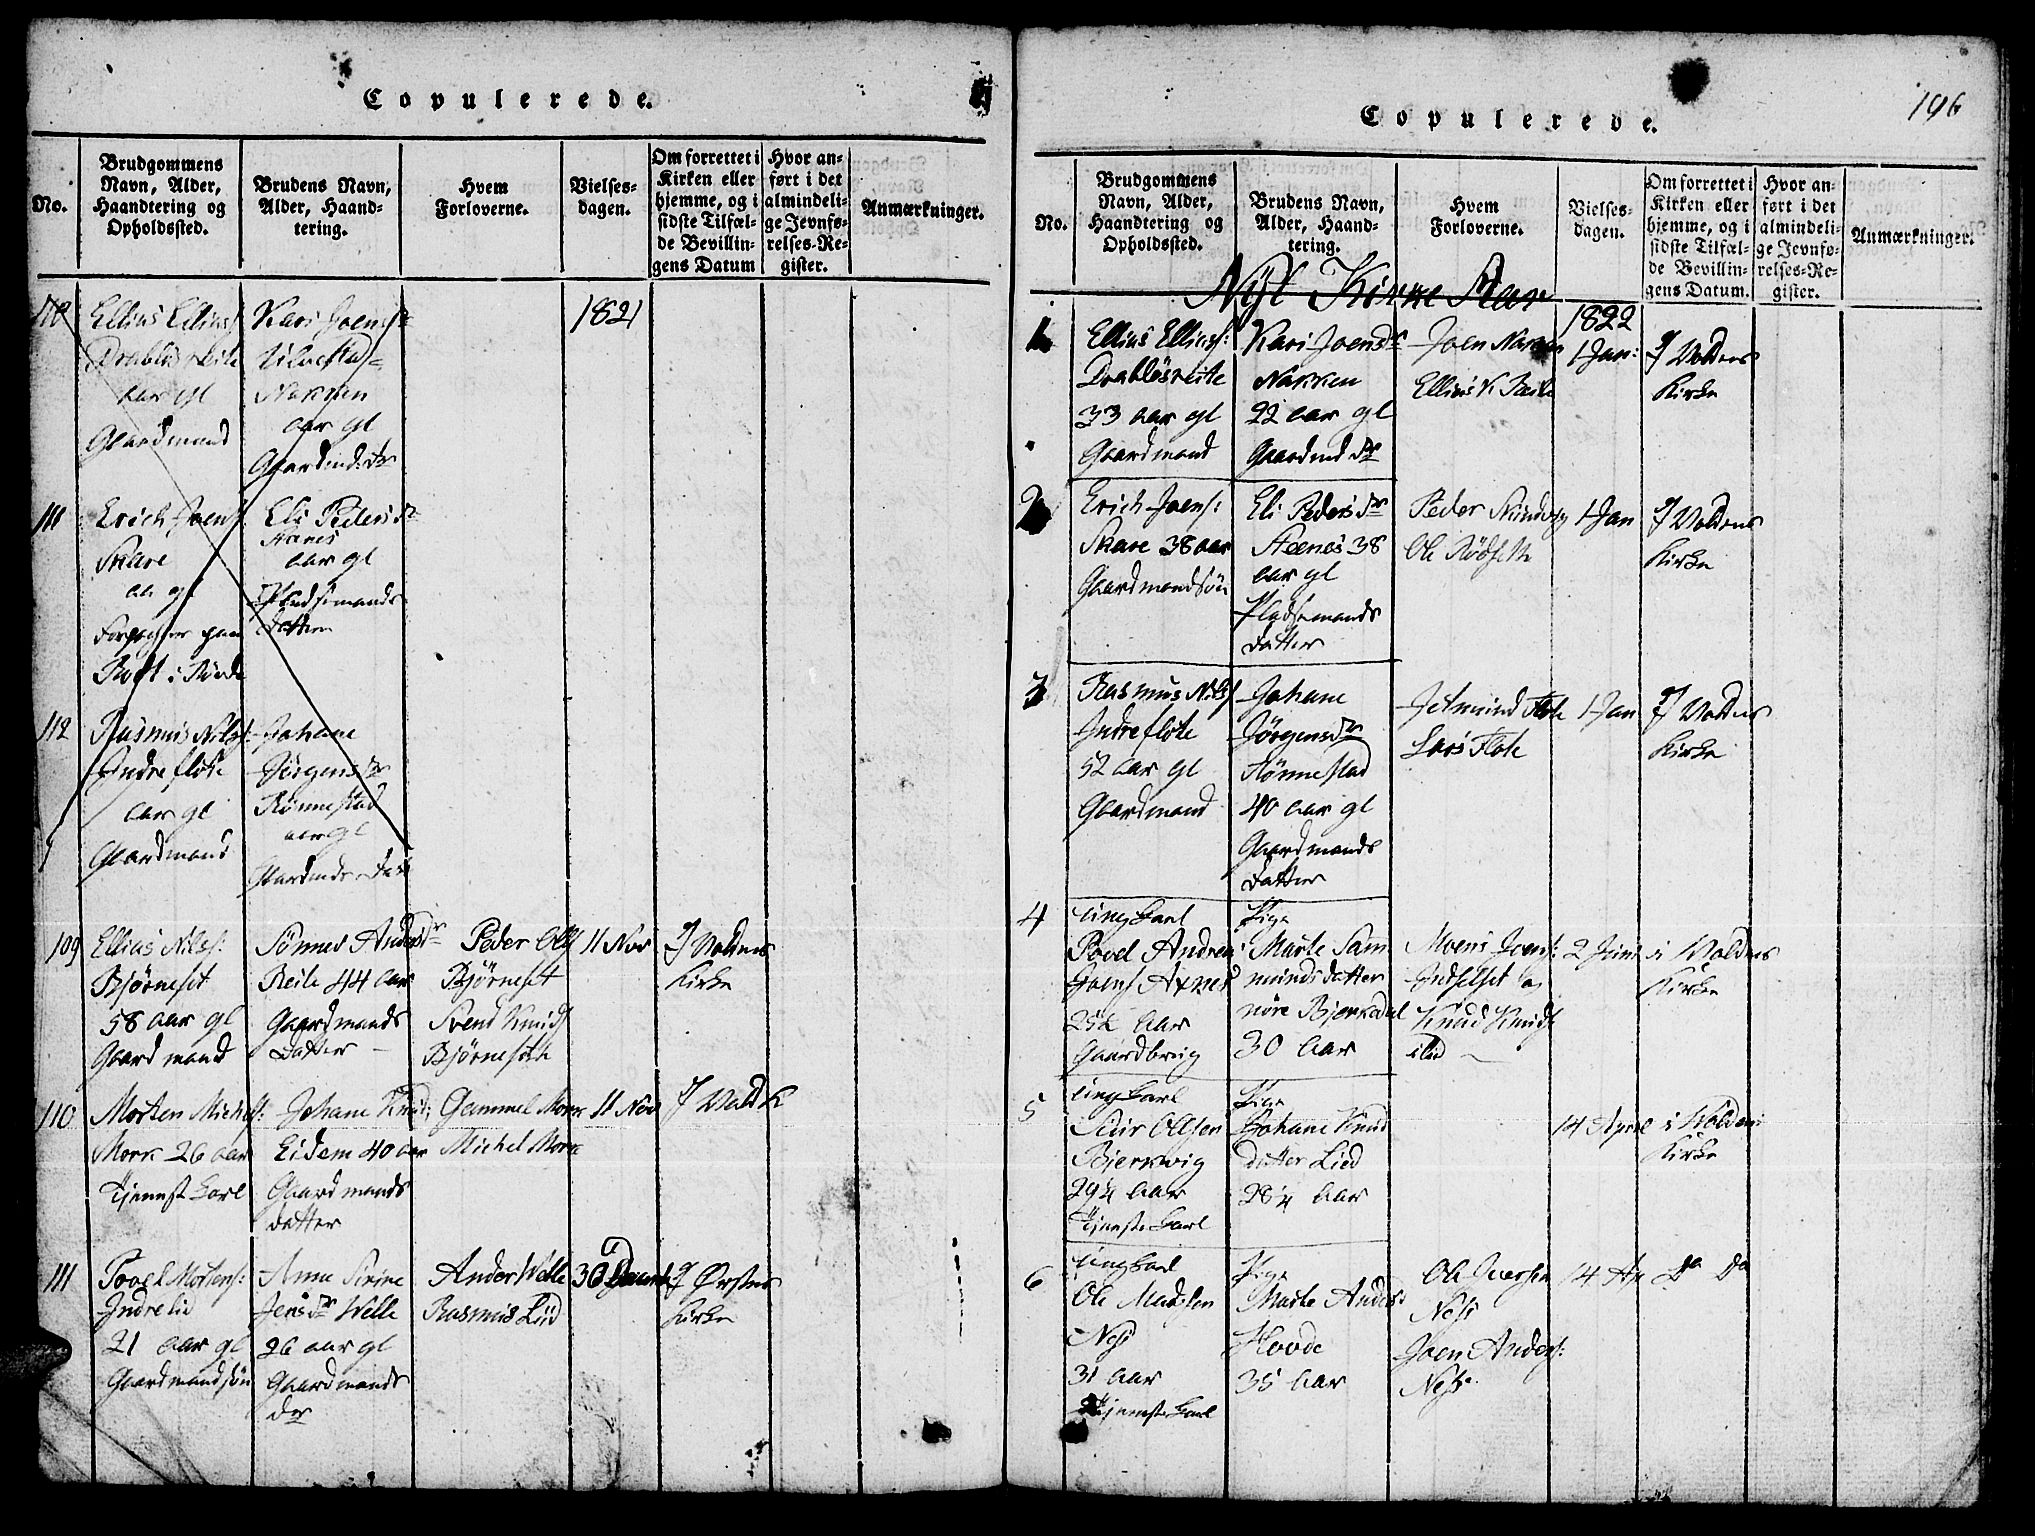 Copulerede.
No.
Brudgommens Navn, Alder, Haandtering og Opholdssted.
Brudens Navn, Alder, Haandtering.
Hvem Forloverne.
Vielsesdagen.
Om forrettet i Kirken eller hjemme, og i sidste Tilfælde Bevillingens Datum
Hvor anført i det almindelige Jevnførelses-Register.
Anmærkninger.
Ellius Ellius:
Drabløsreite
aar gl
Gaardmand
Kari Joensdr
Nakken
aar gl
Gaardmds dr
1821
111
Erich Joens:
Skare
aar gl
Eli Peders dr
Stenes
aar gl
Pladsemands
datter
112
Rasmus Nilss:
Indrefløte
aar gl
Gaardmand
Johane
Jørgensdr
Rønnestad
aar gl
Gaardmds datt
109
Ellius Nilss:
Bjørneset
58 aar gl
Gaardmand
Sønnev Andersdr
Reite 44 aar
Gaardmands
datter
Peder Ols
Bjørneset
Svend Knuds
Bjørneseth
11 Nov
I Voldens
Kirke
110
Morten Michels:
Mork 26 aar
Tjenestkarl
Johane Knuds
Eidem 40 aar
Gaardmands
datter
Gammel Mork
Michel Mork
11 Nov
I Vold K
111
Povel Mortens:
Indrelid
21 aar gl
Gaardmandsøn
Anne Sirine
Jensdr Welle
26 aar gl
Gaardmands
dr
Ander Welle
Rasmus Liid
30
I Ørstens
Kirke
Copulerede.
196
No.
Brudgommens Navn, Alder, Haandtering og Opholdssted.
Brudens Navn, Alder, Haandtering.
Hvem Forloverne.
Vielsesdagen.
Om forrettet i Kirken eller hjemme, og i sidste Tilfælde Bevillingens Datum.
Hvor anført i det almindelige Jevnførelses-Register.
Anmærkninger.
Nyt Kirke Aar
1822
1
Ellius Ellius:
Drabløsreite
33 aar gl
Gaardmand
Kari Joensdr
Nakken
22 aar gl
Gaardmd dr
Joen Nakken
Ellius K Reite
1 Jan:
I Voldens
Kirke
2
Erich Joens:
Skare 38 aar
Gaardmandsøn
Eli Peders dr
Steenes 38
aar gl
Pladsemands
datter
Peder
Ole Rødseth
1 Jan
I Voldens
Kirke
3
Rasmus Nils
Indrefløte
52 aar gl
Gaardmand
Johane
Jørgensdr
Rønnestad
40 aar gl
Gaardmands
datter
Jetmund Fløte
Lars Fløte
1 Jan
I Voldens
Kirke
4
ungkarl
Povel Andrea
Joens Axnes
25½ aar
Gaardbrug
Pige
Marte Sam
munds datter
nøre Bjerkedal
30 aar
Moens Joens:
Knud Knuds
2 Juni
i Voldens
Kirke
5
ungkarl
Siur Ollsen
Bjerkvig
29¼ aar
Tjenestekarl
Pige
Johane Knud
datter Lied
28¼ aar
14 April
i Volden
Kirke
6
ungkarl
Ole Madsen
Nes
31 aar
Tjenestekarl
Pige
Marte Anders:
Hovde
35 aar
Ole Iversen
Nes
Joen Anders:
Nes
14 Ap
Do Do